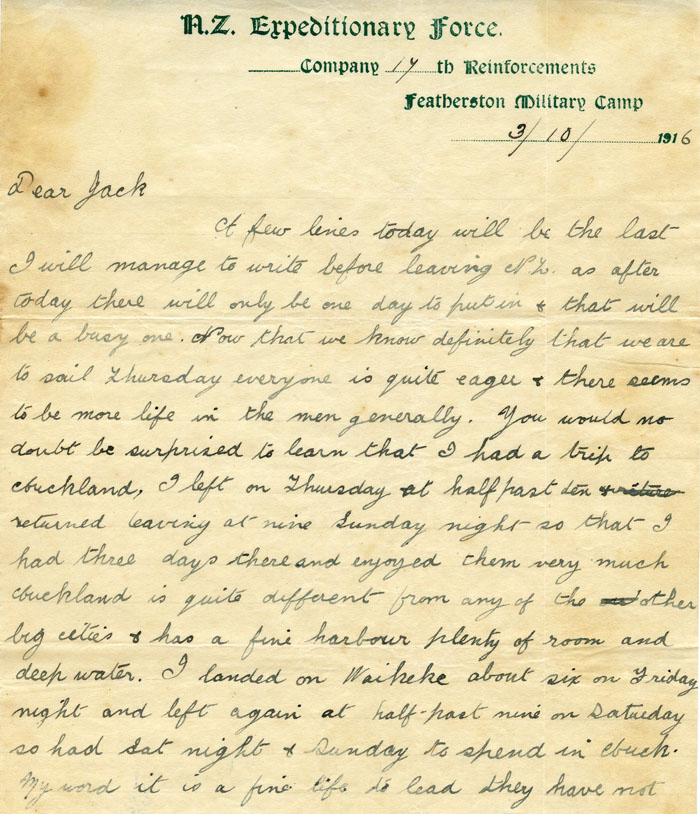 N.Z. Expeditionary Force.
Company 17 th Reinforcements
Featherston Military Camp
3/10/1916
Dear Jack
A few lines today will be the last
I will manage to write before leaving N.Z. as after
today there will only be one day to put in & that will
be a busy one. Now that we know definitely that we are
to sail Thursday everyone is quite eager & there seems
to be more life in the men generally. You would no
doubt be surprised to learn that I had a trip to
Auckland, I left on Thursday at half past ten &
returned leaving at nine Sunday night so that I
had three days there and enjoyed them very much
Auckland is quite different from any of the other
big cities & has a fine harbour plenty of room and
deep water. I landed on Waikeke about six on Friday
night and left again at half-past nine on Satueday
so had Sat night & Sunday to spend in Auck.
My word it is a fine life to lead they have not